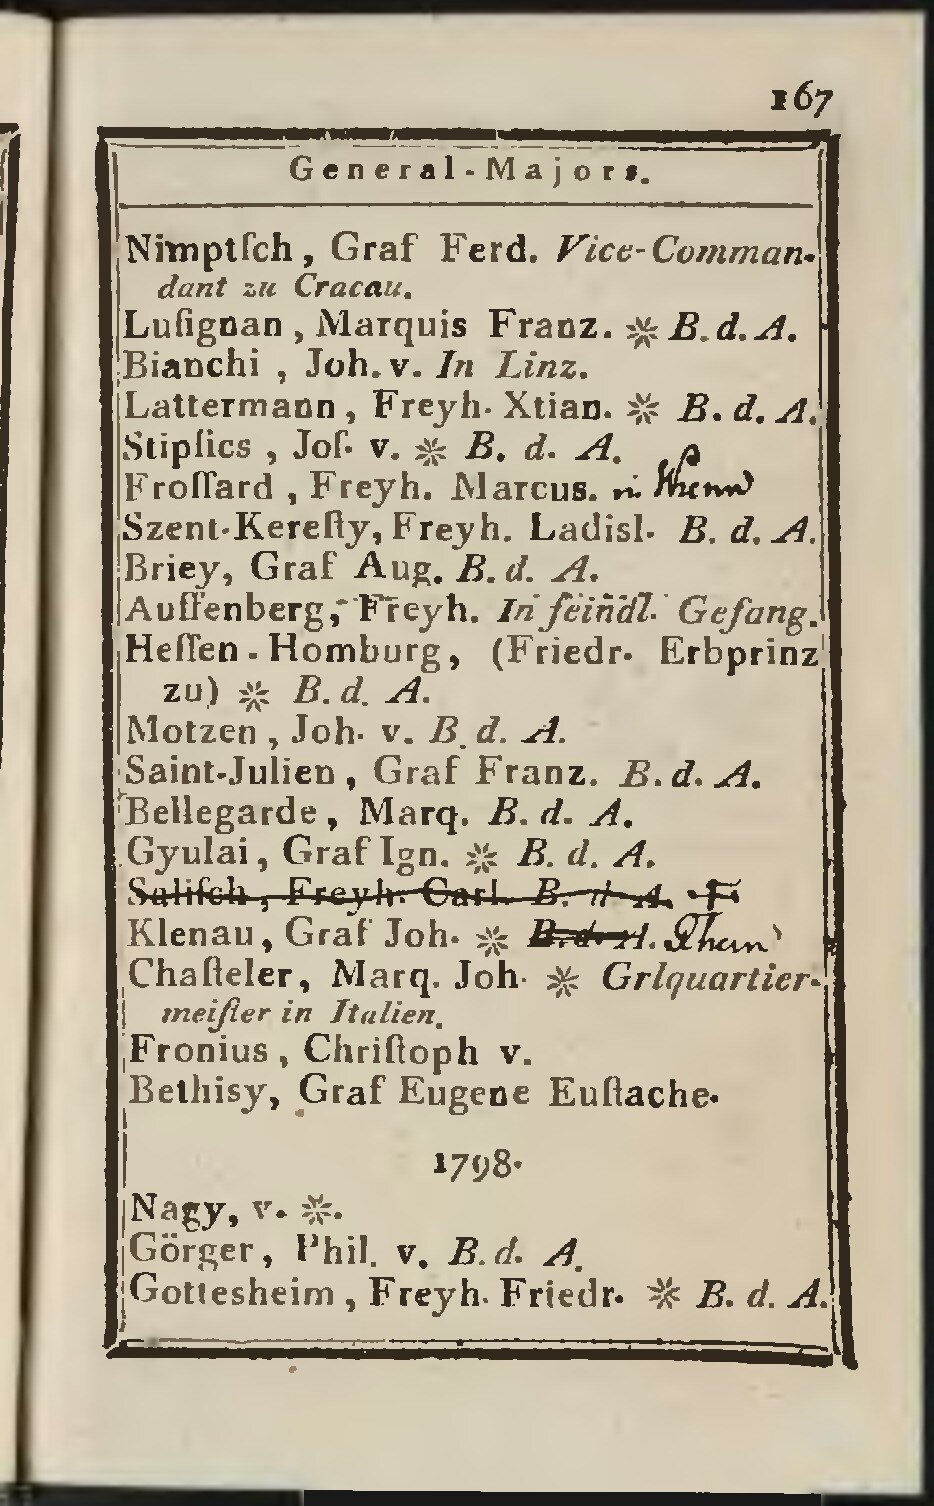 167
General-Majors.
Nimptſch, Graf Ferd. Vice-Comman-
dant zu Cracau.
Luſignan, Marquis Franz. ※ B. d. A.
Bianchi, Joh. v. In Linz.
Lattermann, Freyh. Xtian. ※ B. d. A.
Stipſics, Joſ. v. ※ B. d. A.
Froſſard, Freyh. Marcus.
Szent-Kereſty, Freyh. Ladisl. B. d. A.
Briey, Graf Aug. B. d. A.
Auffenberg, Freyh. In feindl. Gefang.
Heſſen-Homburg, (Friedr. Erbprinz
zu) ※ B. d. A.
Motzen, Joh. v. B. d. A.
Saint-Julien, Graf Franz. B. d. A.
Bellegarde, Marq. B. d. A.
Gyulai, Graf Ign. ※ B. d. A.
Saliſch, Freyh. Carl. B. d. A.
Klenau, Graf Joh. ※ B. d. A.
Chaſteler, Marq. Joh. ※ Grlquartier-
meiſter in Italien.
Fronius, Chriſtoph v.
Bethisy, Graf Eugene Euſtache.
1798.
Nagy, v. ※.
Görger, Phil. v. B. d. A.
Gottesheim, Freyh. Friedr. ※ B. d. A.